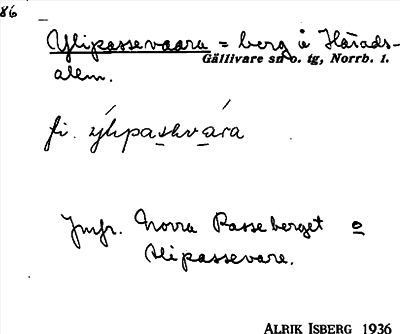 86
Ylipassevaara = berg å Härads-
Gällivare sn o. tg, Norrb. l.
alem.
fi. ýlipaskvára
Jmfr. Norra Passeberget o
Alipassevare.
ALRIK ISBERG 1936